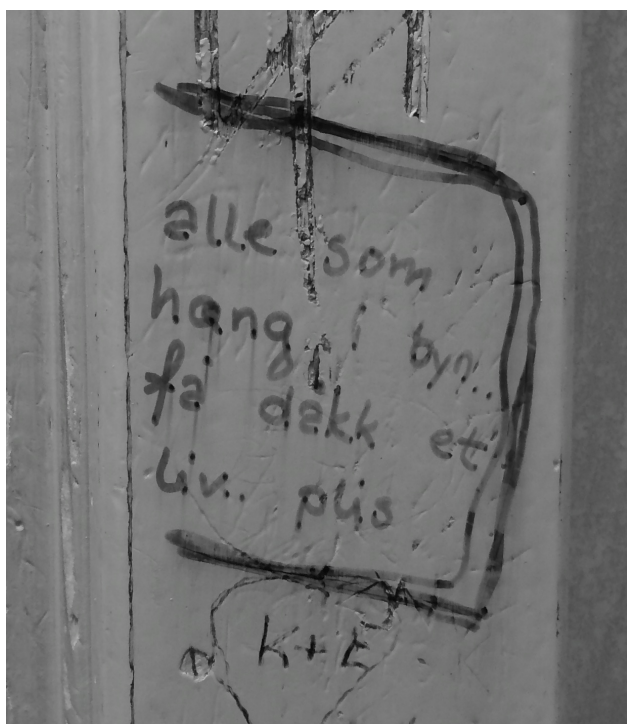 alle som
hang i byn..
få dåkk et
liv.. plis
K+E